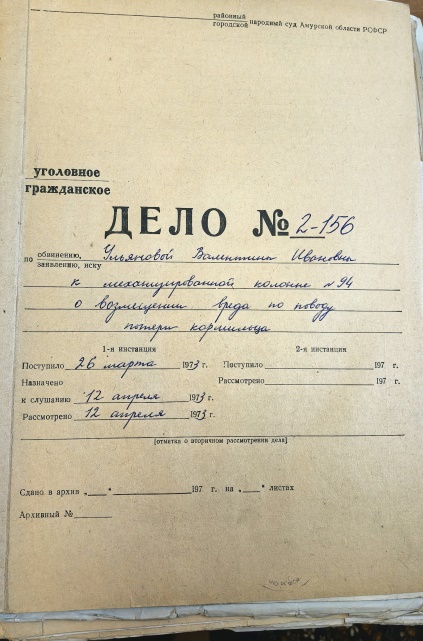 районный
городской народный суд Амурской области РСФСР
уголовное
гражданское
ДЕЛО № 2-156
по обвинению, Ульяновой Валентины Ивановны
заявлению, иску
к механизированной колонне №94
о возмещении вреда по поводу
потери кормильца
1-я инстанция 2-я инстанция
Поступило 26 марта 1973 г. Поступило 197 г.
Назначено Рассмотрено 197 г.
к слушанию 12 апреля 1973 г.
Рассмотрено 12 апреля 1973 г.
[отметка о вторичном рассмотрении дела]
Сдано в архив „ “ 197 г. на „ “ листах
Архивный №